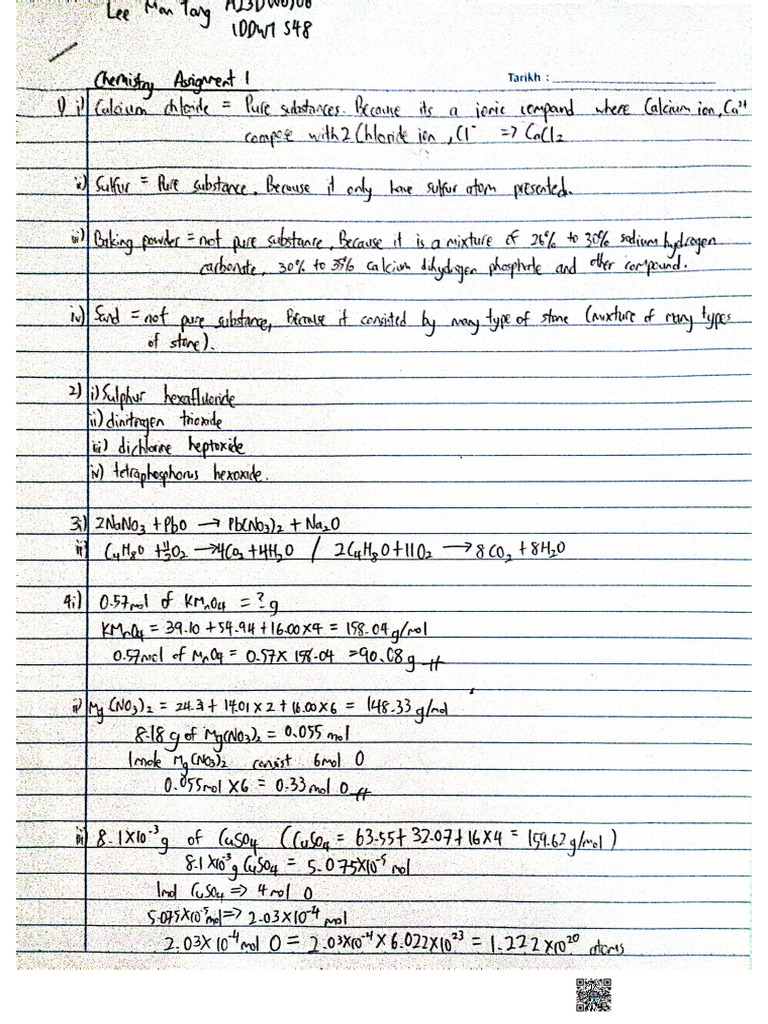 Lee Man Tang A23DW0508
1DDWT S48
Chemistry Assignment 1
Tarikh :
1) i) Calcium chloride = Pure substances. Because its a ionic compound where Calcium ion, Ca²⁺
compose with 2 Chloride ion, Cl⁻ => CaCl₂
ii) Sulfur = Pure substance. Because it only have sulfur atom presented.
iii) Baking powder = not pure substance, Because it is a mixture of 26% to 30% sodium hydrogen
carbonate, 30% to 35% calcium dihydrogen phosphate and other compound.
iv) Sand = not pure substance, Because it consisted by many type of stone (mixture of many types
of stone).
2) i) Sulphur hexafluoride
ii) dinitrogen trioxide
iii) dichlorine heptoxide
iv) tetraphosphorus hexoxide.
3i) 2NaNO₃ + PbO → Pb(NO₃)₂ + Na₂O
ii) C₄H₈O + 11/2 O₂ → 4CO₂ + 4H₂O / 2C₄H₈O + 11O₂ → 8CO₂ + 8H₂O
4i) 0.57mol of KMnO₄ = ? g
KMnO₄ = 39.10 + 54.94 + 16.00 x 4 = 158.04 g/mol
0.57mol of MnO₄ = 0.57 x 158.04 = 90.08g
ii) Mg(NO₃)₂ = 24.3 + 14.01 x 2 + 16.00 x 6 = 148.33 g/mol
8.18 g of Mg(NO₃)₂ = 0.055 mol
1 mole Mg(NO₃)₂ consist 6mol O
0.055mol x 6 = 0.33 mol O
iii) 8.1x10⁻³g of CuSO₄ (CuSO₄ = 63.55 + 32.07 + 16 x 4 = 159.62 g/mol)
8.1x10⁻³g CuSO₄ = 5.075x10⁻⁵ mol
1mol CuSO₄ => 4 mol O
5.075x10⁻⁵mol => 2.03x10⁻⁴mol
2.03x10⁻⁴mol O = 2.03x10⁻⁴ x 6.022x10²³ = 1.222x10²⁰ atoms